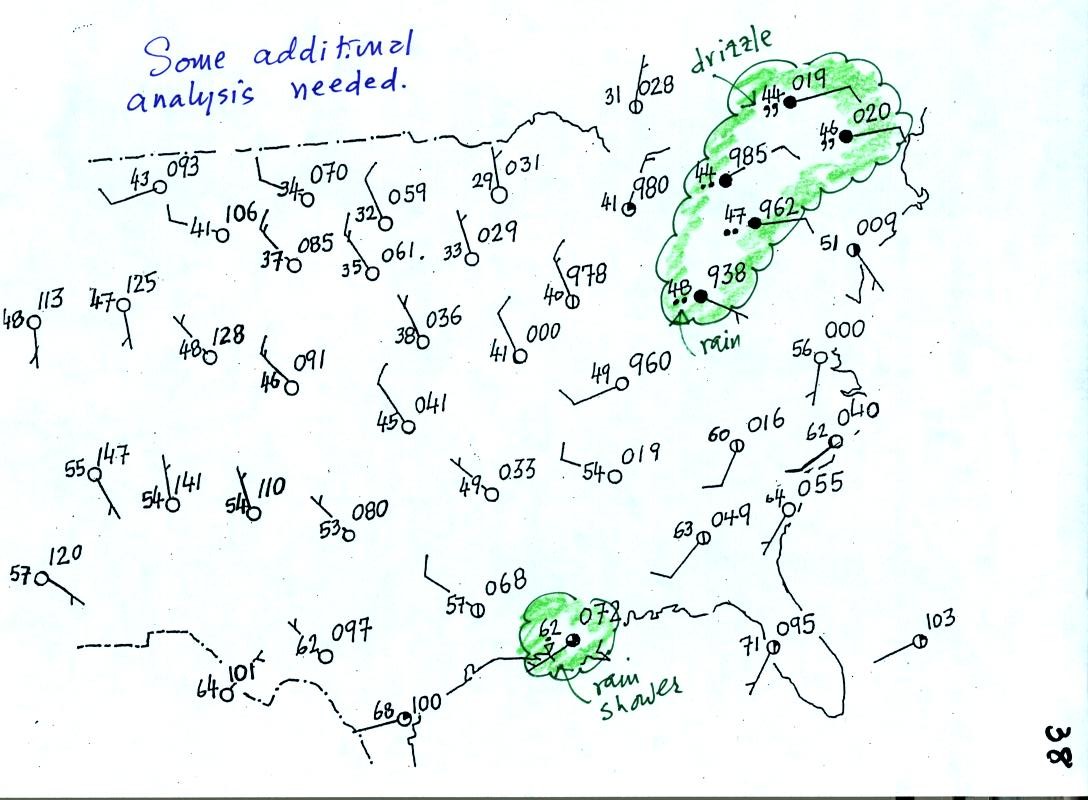 Some additional
analysis needed.
drizzle
44 019
46 020
31 028
44 985
43 093
34 070
32 059
29 031
41 980
47 962
41 106
37 085
35 061.
33 029
51 009
48 113
47 125
40 978
48 938
rain
48 128
38 036
41 000
56 000
46 091
49 960
45 041
60 016
62 040
55 147
54 141
54 110
53 080
49 033
54 019
64 055
63 049
57 120
57 068
62 072
62 097
71 095
103
64 101
68 100
rain
shower
38